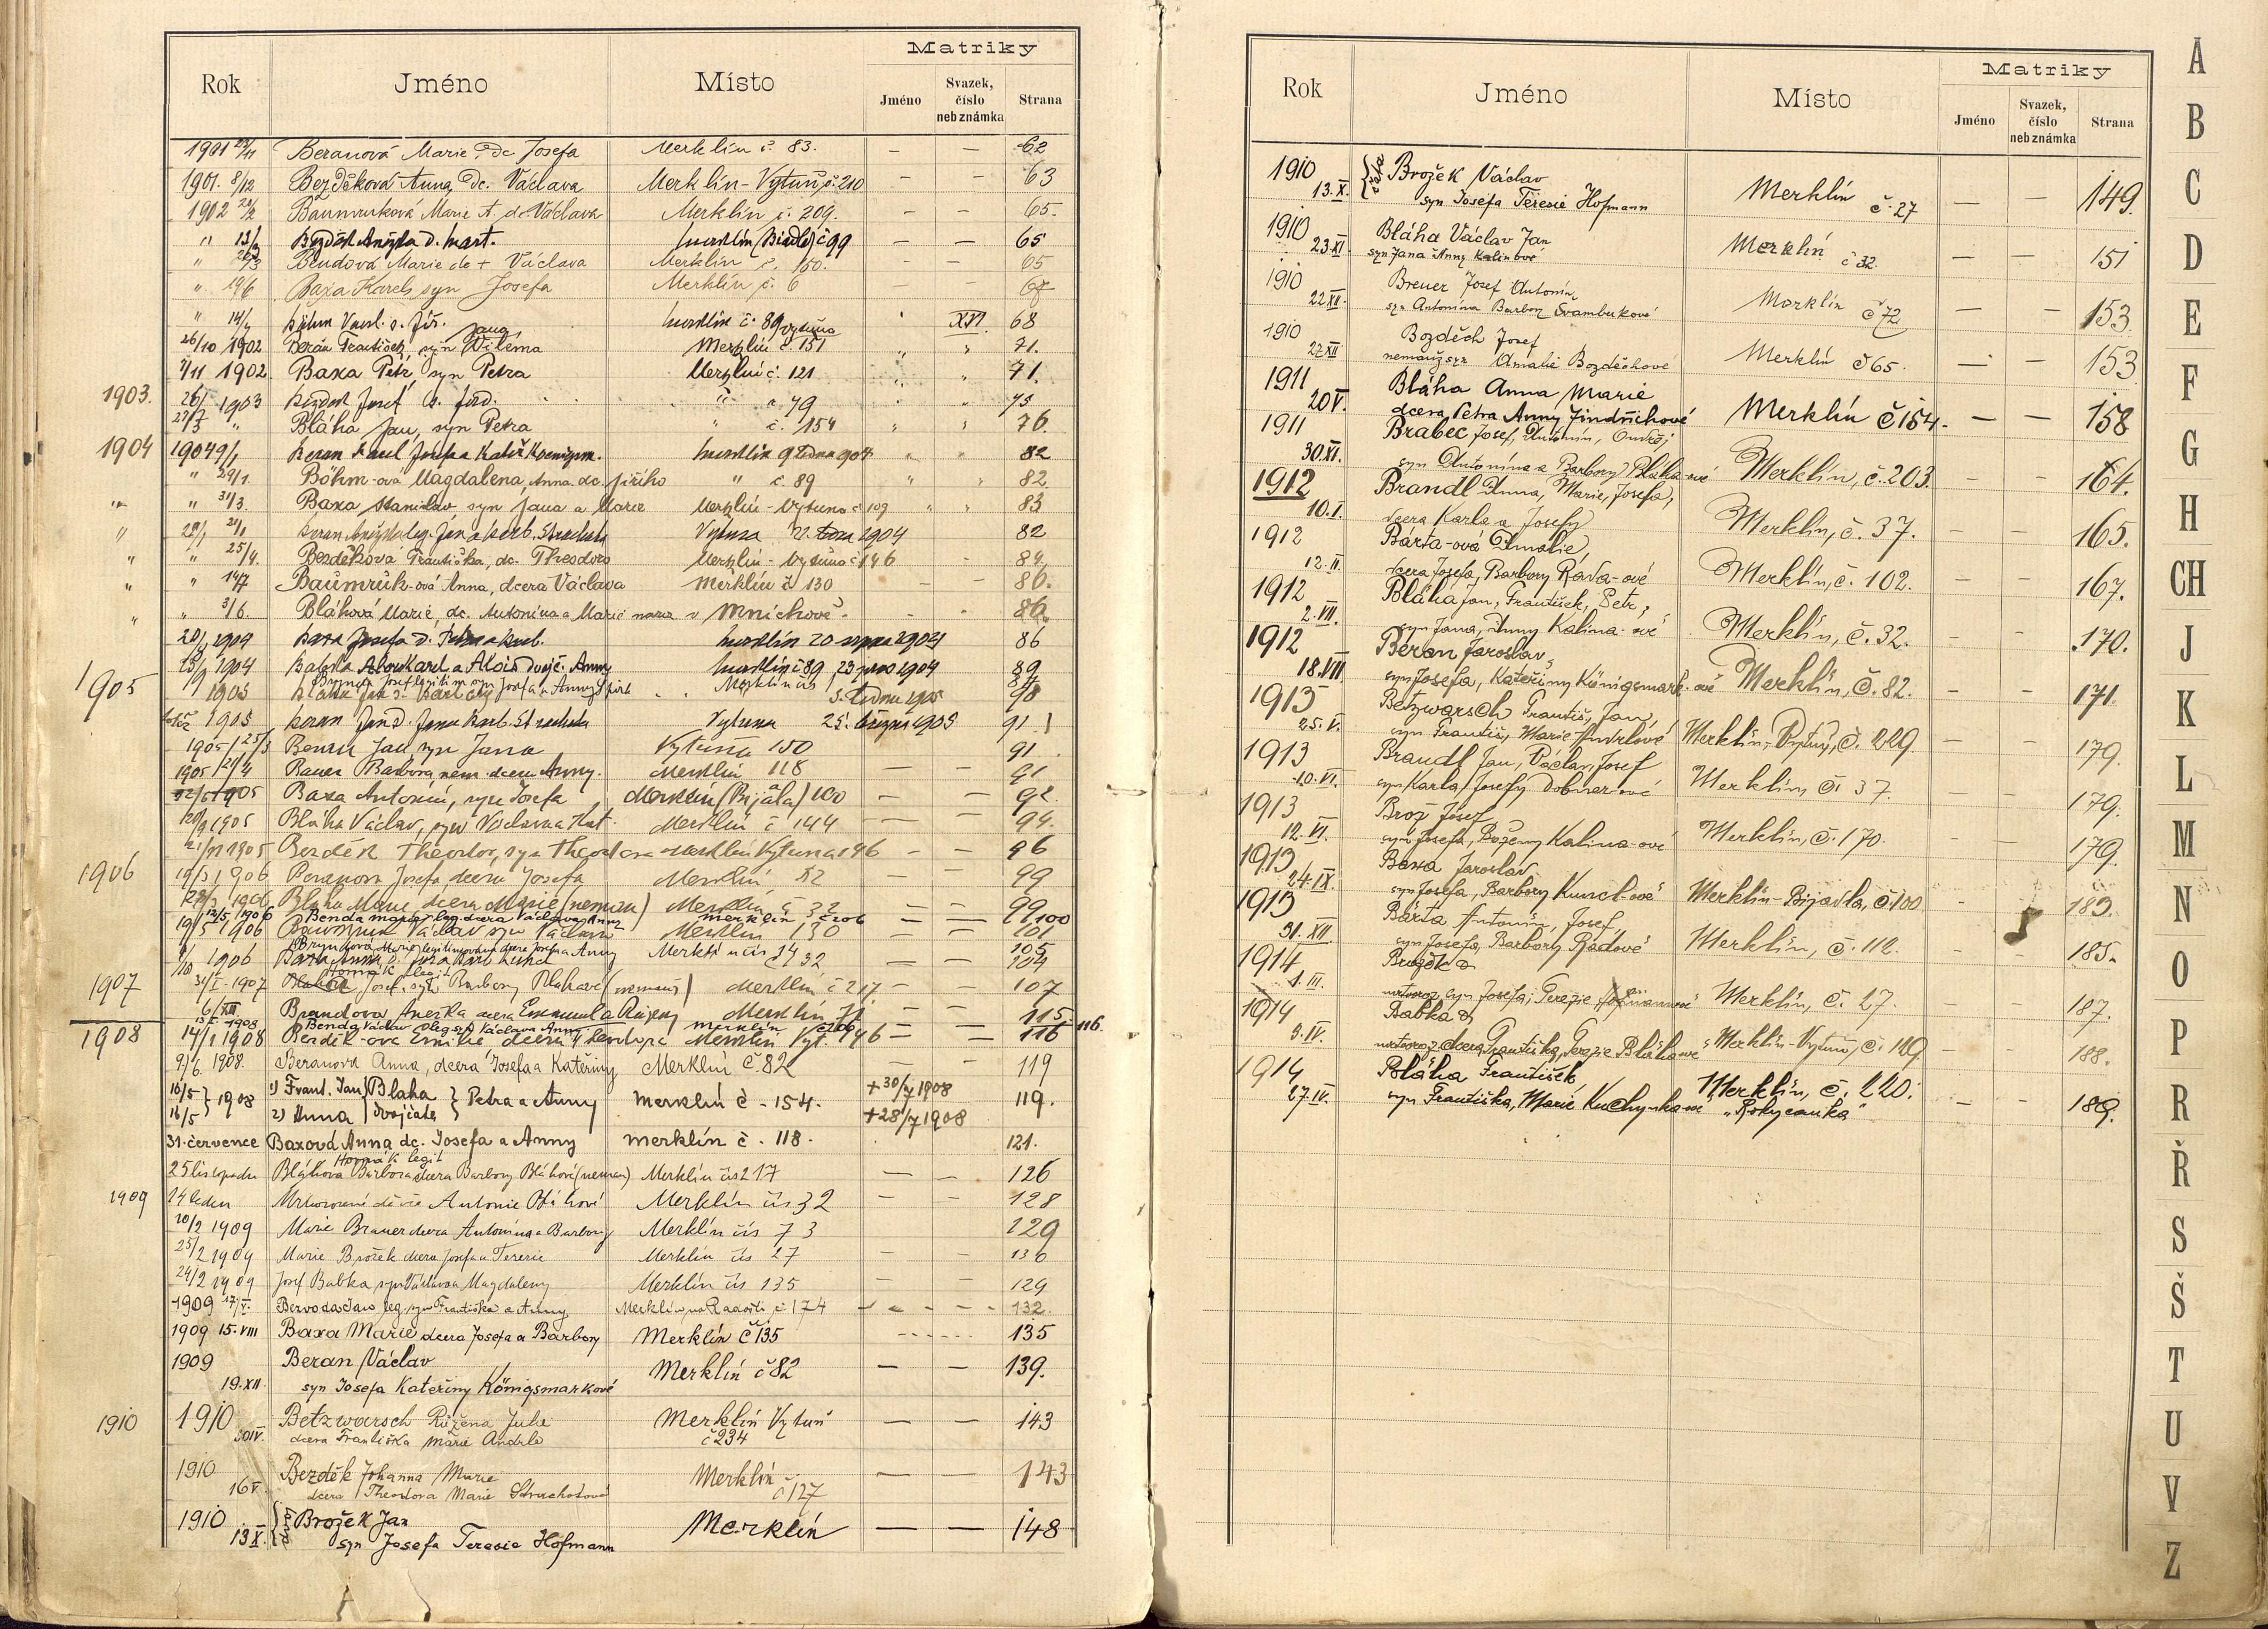 Matriky
Rok Jméno Místo Jméno Svazek, číslo neb známka Strana
1901 Beranová Marie dc. Josefa Merklín č. 83. — — 62
1901. 8/12 Bezděková Anna dc. Václava Merklín - Vytuň č. 210 — — 63
1902 Baumruková Marie A. dc. Václava Merklín č. 209. — — 65.
" 13/2 d. Mart. č 99 — — 65
" Bendová Marie dc + Václava Merklín č. 150. — — 65
" 19/6 Baxa Karel syn Josefa Merklín č. 6 — —
" Böhm Václ. s. Jiř. Merklín č. 89 XVI. 68
26/10 1902 Beran František, syn Viléma Merklín č. 151 " " 71.
7/11 1902 Baxa Petr, syn Petra Merklín č. 121 " " 71.
1903. 26/1 1903 Bezděk Josef s. Ferd. " " 79 75
" Bláha Jan, syn Petra " č. 154 " " 76.
1904 1904 9/1 Beran Karel Josefa a Kateř. Koenigsm. Merklín 9 ledna 904 " " 82
" 29/1. Böhm-ová Magdalena, Anna dc. Jiřího " č. 89 " " 82.
" " 31/3. Baxa Stanislav, syn Jana a Marie Merklín - Vytuna č 109 " " 83
" Vytuna ledna 1904 82
" " 25/4. Bezděková Františka, dc. Theodora Merklín - Vytuna č 146 - 84.
" " 14/7 Baumruk-ová Anna, dcera Václava Merklín č 130 — — 86.
" " 3/6. Bláhová Marie, dc. Antonína a Marie v Mnichově. - - 86.
1904 Baxa Josefa d. Merklín 20 srpna 1904 86
1904 Babka Karel a Alois dvojč. Anny Merklín č 89, 1904 89
1905 Brynda Josef legitim syn Josefa a Anny Merklín čís
1905 ledna 1905 90
1905 Beran Jan Vytuna 25. března 1905 91
1905 25/3 Beran Jan syn Jana Vytuňa 150 91
1905 21/4 Bauer Barbora, nem. dcera Anny. Merklín 118 — — 91
1905 Baxa Antonín, syn Josefa Merklín (Bijála) 100 — — 92.
20/9 1905 Bláha Václav, syn Václava a Kat. Merklín č 144 — — 94.
1905 Bezděk Theodor, syn Theodora Merklín Vytuna 146 — — 96
1906 1906 Beranová Josefa, dcera Josefa Merklín 82 — — 99
1906 Bláha Marie, dcera Marie (neman) Merklín č 32 — — 99
12/5 1906 Benda Marie leg. dcera Václava Anny Merklín č 206 — — 100
19/5 1906 Baumruk Václav syn Václava Merklín 130 — — 101
Bryndová Marie legitimovaná dcera Josefa a Anny Merklín čís 14 105
1906 32 — — 104
1907 31/I. 1907 Horňák legit
Josef, syn Barbory Bláhové (nemanž) Merklín č 217 — — 107
6/XII Brandova Anežka dcera Emanuela Růženy Merklín — — 115
1908 Benda Václav leg. syn Václava Anny Merklín č 206 116.
1908 14/1 1908 Bezděk-ová Emilie dcera Merklín Vyt. 146 — — 116
9/6 1908. Beranová Anna, dcera Josefa a Kateřiny Merklín č. 82 119
16/5 } 1908 1) Frant. Jan } Bláha } Petra a Anny Merklín č - 154. + 30/7 1908 119.
16/5 2) Anna } dvojčata + 28/7 1908
31. července Baxová Anna dc. Josefa a Anny Merklín č. 118. 121.
Horňák legit
25 listopadu Bláhová Barbora dcera Barbory Bláhové (neman) Merklín čís 217 — — 126
1909 24 leden Mrtvorozené děvče Antonie Bláhové Merklín čís 32 — — 128
20/2 1909 Marie Brauer dcera Antonína a Barbory Merklín čís 73 129
25/2 1909 Marie Brožek dcera Josefa a Terezie Merklín čís 27 — — 130
24/2 1909 Josef Babka syn Václava a Magdaleny Merklín čís 135 — — 129
1909 17/V. Bezvoda Jan leg. syn Františka a Anny Merklín na Radosti č 174 — — 132.
1909 15. VIII Baxa Marie dcera Josefa a Barbory Merklín č 135 135
1909 Beran Václav Merklín č 82 — — 139.
19. XII syn Josefa Kateřiny Königsmarkové
1910 1910 Betzwarsch Růžena Julie Merklín Vytuň — — 143
30 IV. dcera Františka Marie Andrle č 234
1910 Bezděk Johanna Marie Merklín — — 143
16 V. dcera Theodora Marie Strachotové č 127
1910 Brožek Jan Merklín — — 148
13 X. syn Josefa Terezie Hofmann
Matriky
Rok Jméno Místo Jméno Svazek, číslo neb známka Strana
1910 Brožek Václav Merklín č. 27 — — 149.
13. X. syn Josefa Terezie Hofmann
1910 Bláha Václav Jan Merklín č 32. — — 151
23 XI. syn Jana Anny Kalinové
1910 Breuer Josef Antonín Merklín č 72 — — 153.
22 XII. syn Antonína Barbory Švamberkové
1910 Bozděch Josef Merklín č 65. — — 153
27 XII nemanž syn Amalie Bozděchové
1911 Bláha Anna Marie Merklín č 154. — — 158
20 V. dcera Petra Anny Jindřichové
1911 Brabec Josef, Antonín, Ondřej
30. XI. syn Antonína a Barbory Bláha-ové Merklín, č. 203. — — 164.
1912 Brandl Anna, Marie, Josefa,
10. I. dcera Karla a Josefy Merklín, č. 37. — — 165.
1912 Bárta-ová Amalie,
12. II. dcera Josefa, Barbory Rada-ové Merklín, č. 102. — — 167.
1912 Bláha Jan, František, Petr,
2. VII. syn Jana, Anny Kalina-ové Merklín, č. 32. — — 170.
1912 Beran Jaroslav,
18. VII syn Josefa, Kateřiny Königsmark-ové Merklín, č. 82. — — 171.
1913 Betzwarsch Františ, Jan,
25. V. syn Františ, Marie Andrlové Merklín-Vytuň, č. 229. — — 179.
1913 Brandl Jan, Václav, Josef
10. VI. syn Karla, Josefy Dobner-ové Merklín, č. 37. — — 179.
1913 Brož Josef
12. VI. syn Josefa, Boženy Kalina-ové Merklín, č. 170. — — 179.
1913 Baxa Jaroslav
24. IX. syn Josefa, Barbory Kuncl-ové Merklín-Bijadla, č 100 — — 183.
1913 Bárta Antonín, Josef,
31. XII. syn Josefa, Barbory Radové Merklín, č. 112. — — 185.
1914 Brožek
1. III. mrtvoroz. syn Josefa, Terezie Merklín, č. 27. — — 187.
1914 Babka
3. IV. mrtvoroz. dcera Františka, Terezie Bláhové Merklín-Vytuň, č. 109. — — 188.
1914 Bláha František, Merklín, č. 220.
27. IV. syn Františka, Marie Kuchynkové „Rokycanka" — — 189.
A
B
C
D
E
F
G
H
CH
J
K
L
M
N
O
P
R
Ř
S
Š
T
U
V
Z